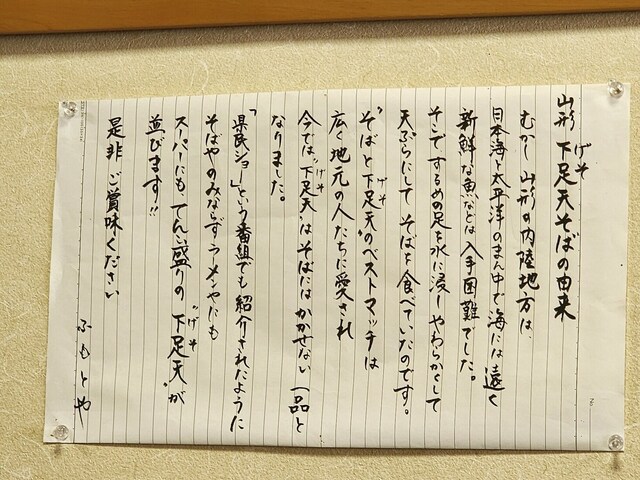 山形 下足天そばの由来
げそ
むかし 山形の内陸地方は、
日本海と太平洋のまん中で海には遠く
新鮮な魚などは 入手困難でした。
そこで するめの足を水に浸し やわらかくして
天ぷらにして そばを食べていたのです。
"そばと下足天"のベストマッチは
げそ
広く地元の人たちに愛され
今では"下足天"はそばにはかかせない 一品と
げそ
なりました。
「県民ショー」という番組でも 紹介されたように
そばやのみならず ラーメンやにも
スーパーにも てんこ盛りの "下足天"が
げそ
並びます!!
是非 ご賞味ください
ふもとや